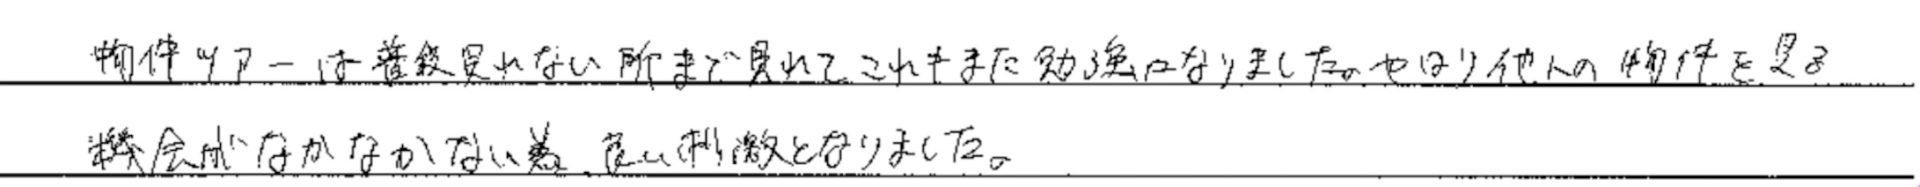 物件ツアーは普段見れない所まで見れてこれもまた勉強になりました。やはり他人の物件を見る
機会がなかなかない為、良い刺激となりました。